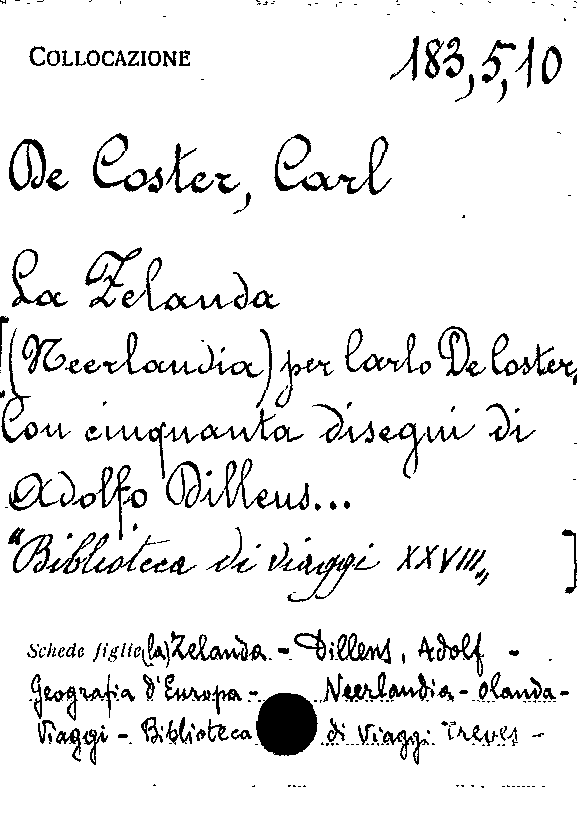 COLLOCAZIONE 183,5,10
De Coster, Carl
La Zelanda
[(Neerlandia) per Carlo De Coster,
Con cinquanta disegni di
Adolfo Dillens...
"Biblioteca di viaggi XXVIII„ ]
Schede figlie (la) Zelanda - Dillens, Adolf -
Geografia d'Europa - Neerlandia - Olanda -
Viaggi - Biblioteca di Viaggi Treves -